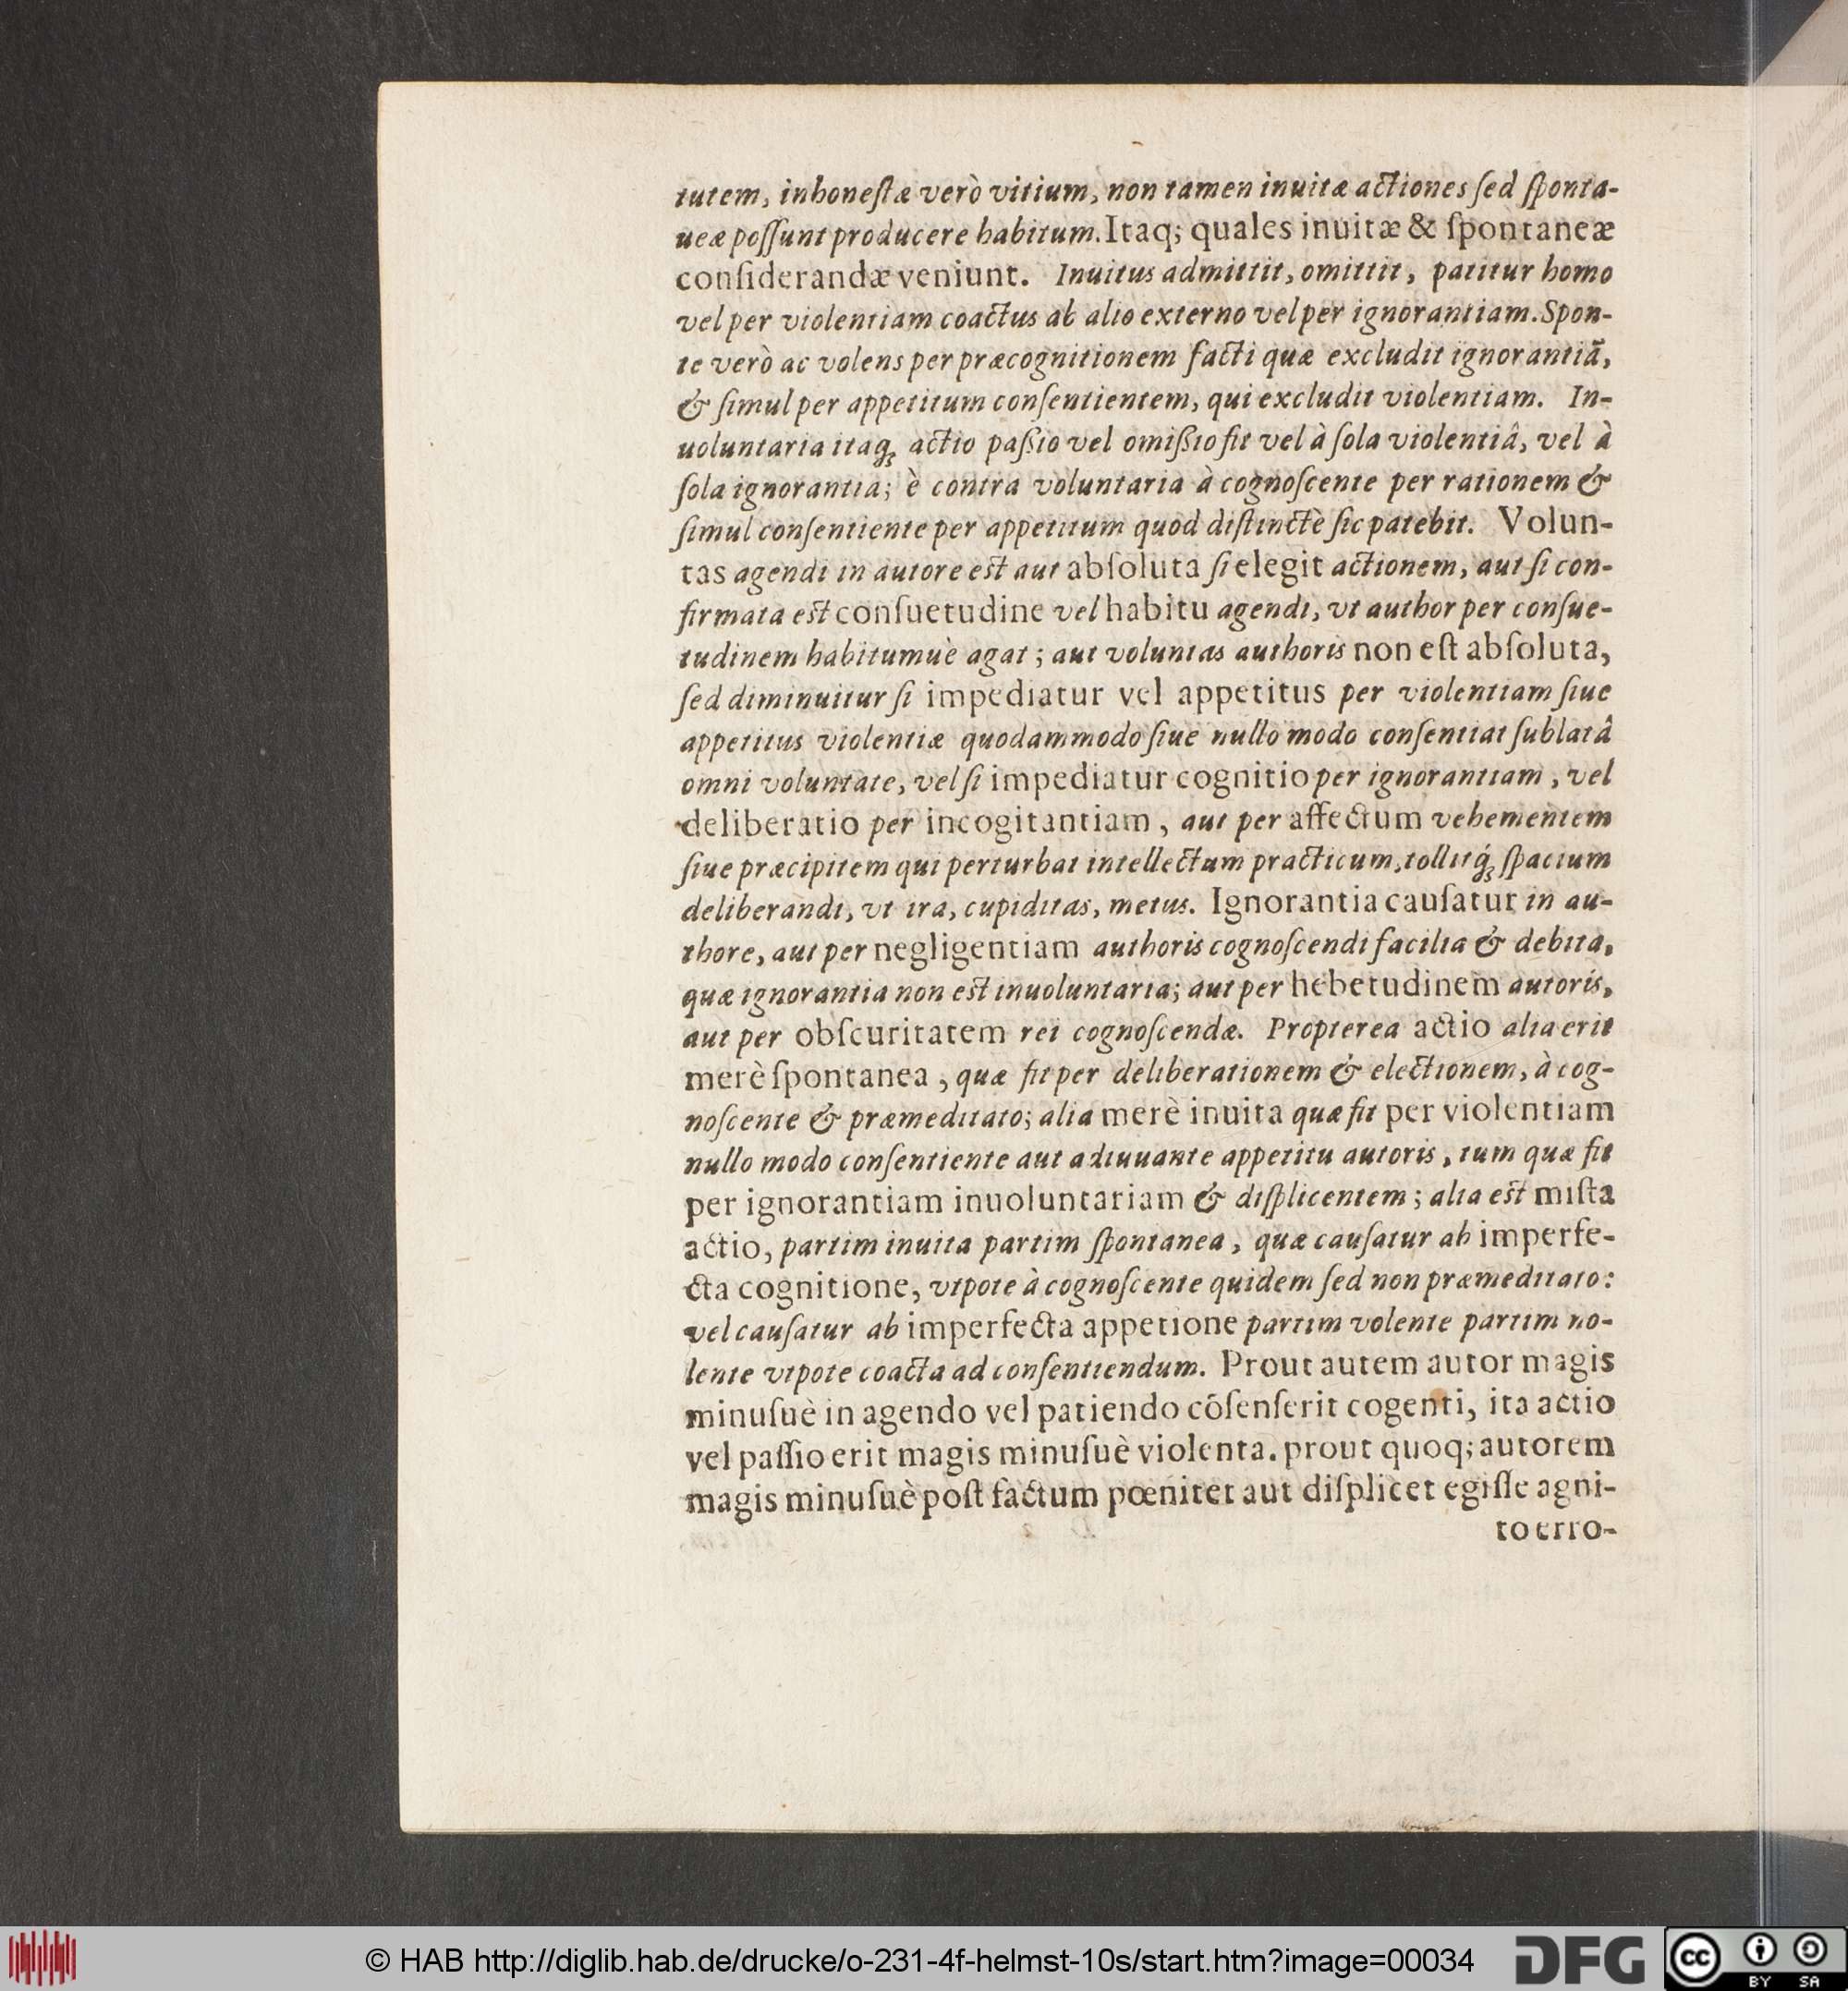 tutem, inhoneſtæ verò vitium, non tamen inuitæ actiones ſed ſponta-
ueæ poſſunt producere habitum. Itaq; quales inuitæ & ſpontaneæ
conſiderandæ veniunt. Inuitus admittit, omittit, patitur homo
vel per violentiam coactus ab alio externo vel per ignorantiam. Spon-
te verò ac volens per præcognitionem facti quæ excludit ignorantiã,
& ſimul per appetitum conſentientem, qui excludit violentiam. In-
uoluntaria itaq; actio paßio vel omißio fit vel à ſola violentiâ, vel à
ſola ignorantia; è contra voluntaria à cognoſcente per rationem &
ſimul conſentiente per appetitum quod diſtinctè ſic patebit. Volun-
tas agendi in autore eſt aut abſoluta ſi elegit actionem, aut ſi con-
firmata eſt conſuetudine vel habitu agendi, vt author per conſue-
tudinem habitumuè agat; aut voluntas authoris non eſt abſoluta,
ſed diminuitur ſi impediatur vel appetitus per violentiam ſiue
appetitus violentiæ quodammodo ſiue nullo modo conſentiat ſublatâ
omni voluntate, vel ſi impediatur cognitio per ignorantiam, vel
deliberatio per incogitantiam, aut per affectum vehementem
ſiue præcipitem qui perturbat intellectum practicum, tollitq́; ſpacium
deliberandi, vt ira, cupiditas, metus. Ignorantia cauſatur in au-
thore, aut per negligentiam authoris cognoſcendi facilia & debita,
quæ ignorantia non eſt inuoluntaria; aut per hebetudinem autoris,
aut per obſcuritatem rei cognoſcendæ. Propterea actio alia erit
merè ſpontanea, quæ fit per deliberationem & electionem, à cog-
noſcente & præmeditato; alia merè inuita quæ fit per violentiam
nullo modo conſentiente aut adiuuante appetitu autoris, tum quæ fit
per ignorantiam inuoluntariam & diſplicentem; alia eſt miſta
actio, partim inuita partim ſpontanea, quæ cauſatur ab imperfe-
cta cognitione, vtpote à cognoſcente quidem ſed non præmeditato:
vel cauſatur ab imperfecta appetione partim volente partim no-
lente vtpote coacta ad conſentiendum. Prout autem autor magis
minuſuè in agendo vel patiendo cõſenſerit cogenti, ita actio
vel paſſio erit magis minuſuè violenta. prout quoq; autorem
magis minuſuè poſt factum pœnitet aut diſplicet egiſſe agni-
to erro-
© HAB http://diglib.hab.de/drucke/o-231-4f-helmst-10s/start.htm?image=00034
DFG
cc BY SA